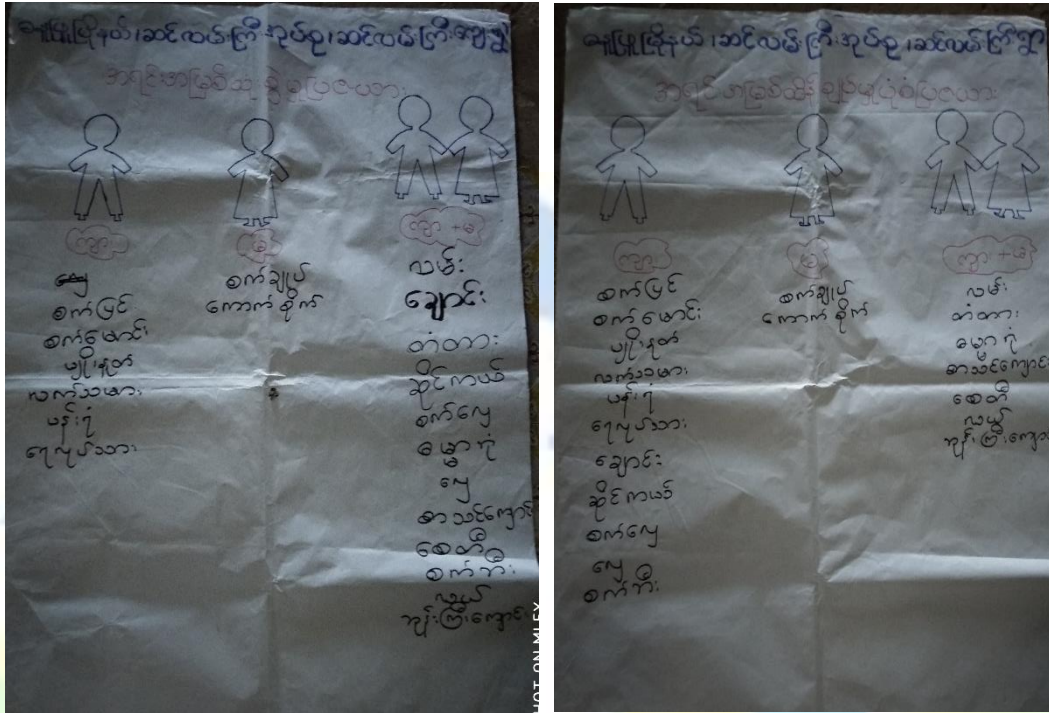 မြို့နယ်၊ဆင်လမ်းကြီးအုပ်စု၊ဆင်လမ်းကြီးကျေးရွာ
အရင်းအမြစ်သုံးစွဲမှုပြဇယား
ကျား
မ
ကျား+မ
လှေ
စက်ပြင်
စက်မောင်း
မျိုးနုတ်
လက်သမား
ပန်းရံ
ရေလုပ်သား
စက်ချုပ်
ကောက်စိုက်
လမ်း
ချောင်း
တံတား
ဆိုင်ကယ်
စက်လှေ
ဓမ္မာရုံ
လှေ
စာသင်ကျောင်း
စေတီ
စက်ဘီး
လယ်
ဘုန်းကြီးကျောင်း
SHOT ON MI EX
မြို့နယ်၊ဆင်လမ်းကြီးအုပ်စု၊ဆင်လမ်းကြီးရွာ
အရင်းအမြစ်ထိန်းချုပ်မှုပုံစံပြဇယား
ကျား
မ
ကျား+မ
စက်ပြင်
စက်မောင်း
မျိုးနုတ်
လက်သမား
ပန်းရံ
ရေလုပ်သား
ချောင်း
ဆိုင်ကယ်
စက်လှေ
လှေ
စက်ဘီး
စက်ချုပ်
ကောက်စိုက်
လမ်း
တံတား
ဓမ္မာရုံ
စာသင်ကျောင်း
စေတီ
လယ်
ဘုန်းကြီးကျောင်း